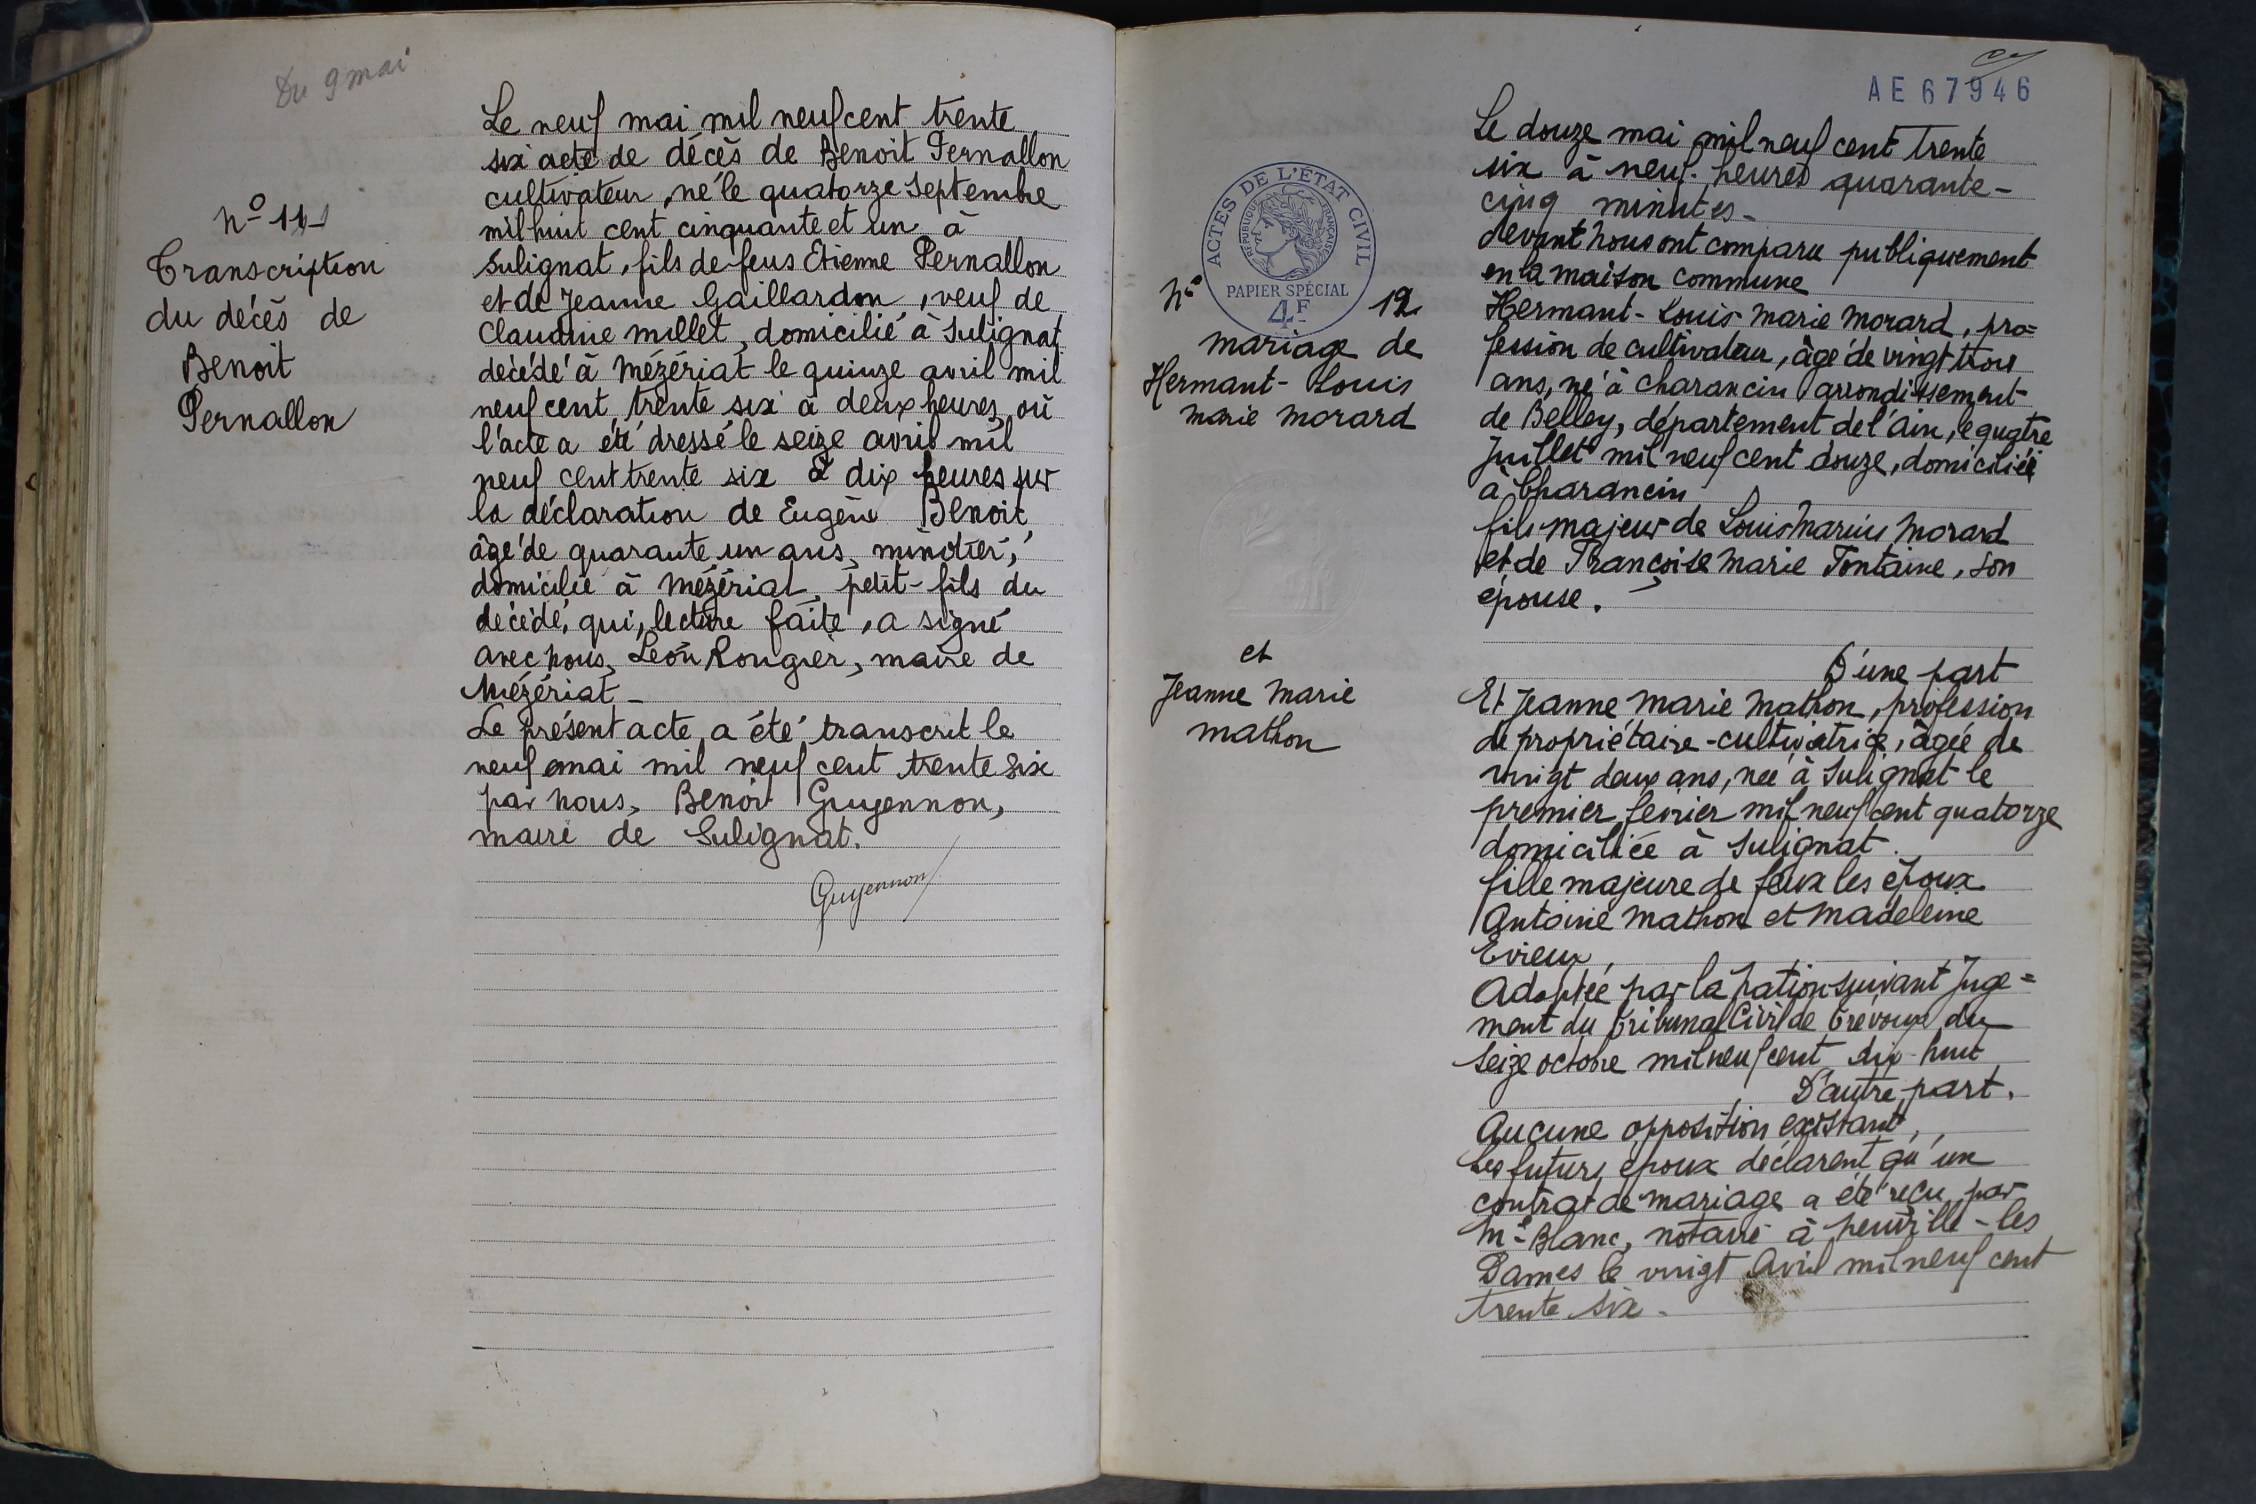 Du 9 mai
n° 11
Transcription
du décès de
Benoit
Pernallon
Le neuf mai mil neuf cent trente
six acte de décès de Benoit Pernallon
cultivateur, né le quatorze Septembre
mil huit cent cinquante et un à
Sulignat, fils de feus Etienne Pernallon
et de Jeanne Gaillardon, veuf de
Claudine Millet, domicilié à Sulignat
décédé à Mézériat le quinze avril mil
neuf cent trente six à deux heures, où
l'acte a été dressé le seize avril mil
neuf cent trente six à dix heures sur
la déclaration de Eugène Benoit
âgé de quarante un ans, minotier,
domicilié à Mézériat, petit-fils du
décédé, qui, lecture faite, a signé
avec nous, Léon Rougier, maire de
Mézériat -
Le présent acte a été transcrit le
neuf mai mil neuf cent trente six
par nous, Benoit Guyennon,
maire de Sulignat.
Guyennon
AE 67946
ACTES DE L'ÉTAT CIVIL
RÉPUBLIQUE FRANÇAISE
PAPIER SPÉCIAL
4F
N° 12
mariage de
Hermant-Louis
Marie Morard
et
Jeanne Marie
Mathon
Le douze mai mil neuf cent trente
six à neuf heures quarante-
cinq minutes -
devant nous ont comparu publiquement
en la maison commune
Hermant-Louis Marie Morard, pro=
fession de cultivateur, âgé de vingt trois
ans, né à Charancin arrondissement
de Belley, département de l'Ain, le quatre
Juillet mil neuf cent douze, domicilié
à Charancin
fils majeur de Louis Marius Morard
et de Françoise Marie Fontaine, son
épouse.
D'une part
Et Jeanne Marie Mathon, profession
de propriétaire-cultivatrice, âgée de
vingt deux ans, née à Sulignat le
premier février mil neuf cent quatorze
domiciliée à Sulignat.
fille majeure de feux les époux
Antoine Mathon et Madeleine
Evieux,
Adoptée par la Nation suivant Juge=
ment du Tribunal Civil de Trévoux du
seize octobre mil neuf cent dix-huit
D'autre part.
Aucune opposition existant,
Les futurs époux déclarent qu'un
contrat de mariage a été reçu par
Me Blanc, notaire à Neuville-les
Dames le vingt Avril mil neuf cent
trente six -